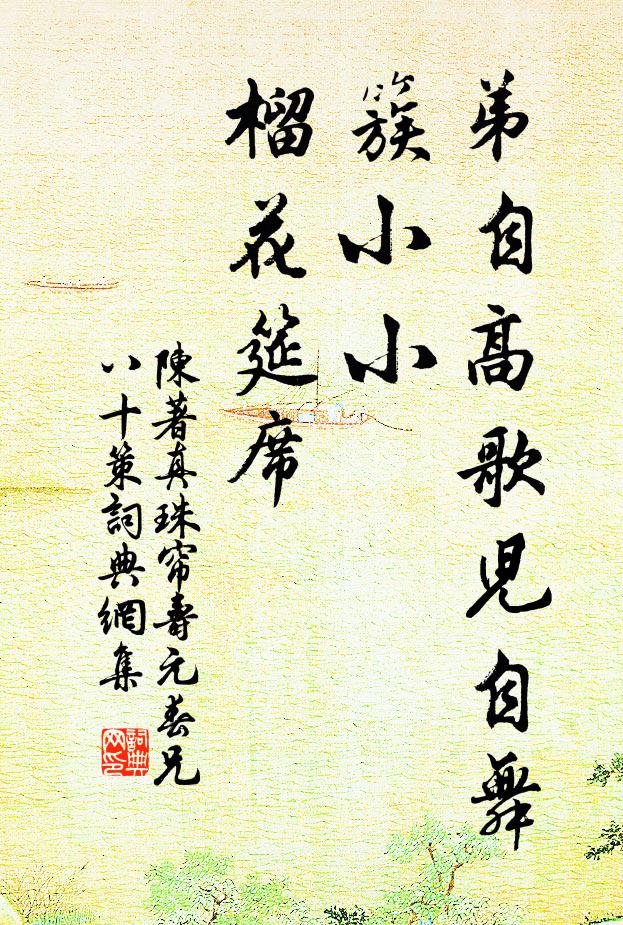 弟自高歌兒自舞
簇小小
榴花筵席
陳著真珠帘壽元春兄
八十策詞典網集
詞典
网印